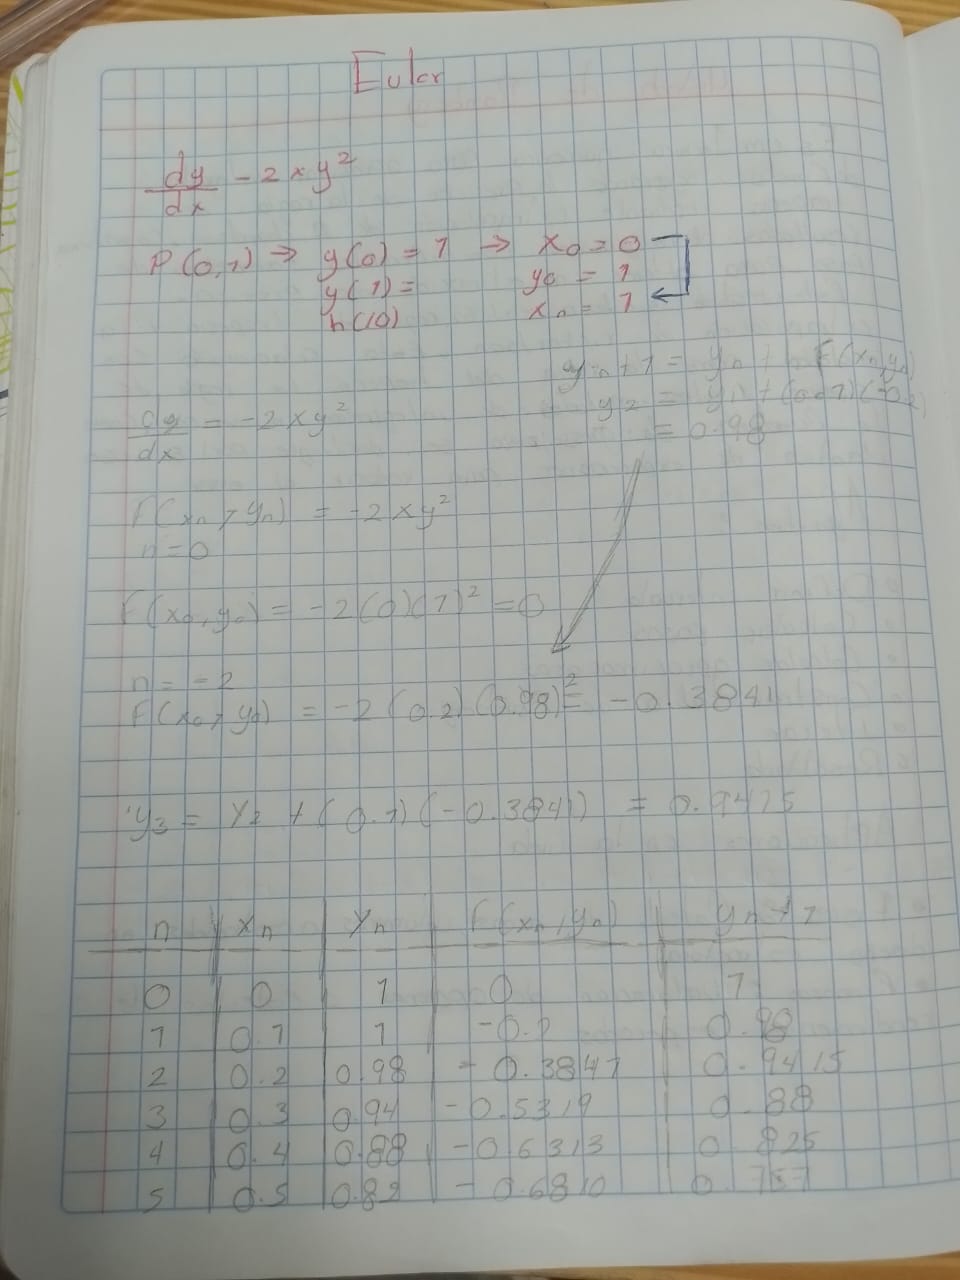 Euler
dy/dx - 2xy²
P(0,1) → y(0) = 1 → x₀ = 0
y(1) = y₀ = 1
h(10) xₙ = 1
yₙ+1 = yₙ + F(xₙ,yₙ)
dy/dx = -2xy² y₂ = y₁ + (0.1)(-0.2)
= 0.98
F(xₙ,yₙ) = -2xy²
n=0
F(x₀,y₀) = -2(0)(1)² = 0
n = -2
F(x₀,y₀) = -2(0.2)(0.98)² = -0.3841
y₃ = y₂ + (0.1)(-0.3841) = 0.9415
n xₙ yₙ F(xₙ,yₙ) yₙ+1
0 0 1 0 1
1 0.1 1 -0.2 0.98
2 0.2 0.98 -0.3841 0.9415
3 0.3 0.94 -0.5319 0.88
4 0.4 0.88 -0.6313 0.825
5 0.5 0.82 -0.6810 0.757